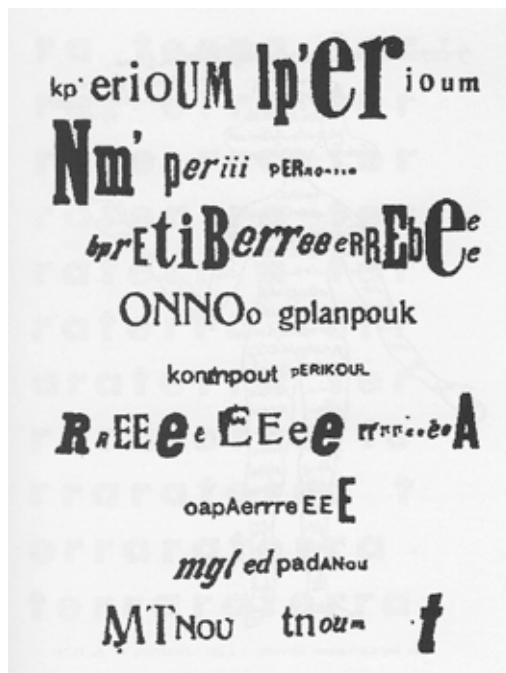 kp' erioUM lp'er ioum
Nm' periii pERnoiii
bprEtiBerreeeRREbEee
ONNOo gplanpouk
konmpout pERIKOUL
RREEEe e EEee rrrriieeA
oapAerrreEEE
mgl ed padANou
MTNou tnoum t